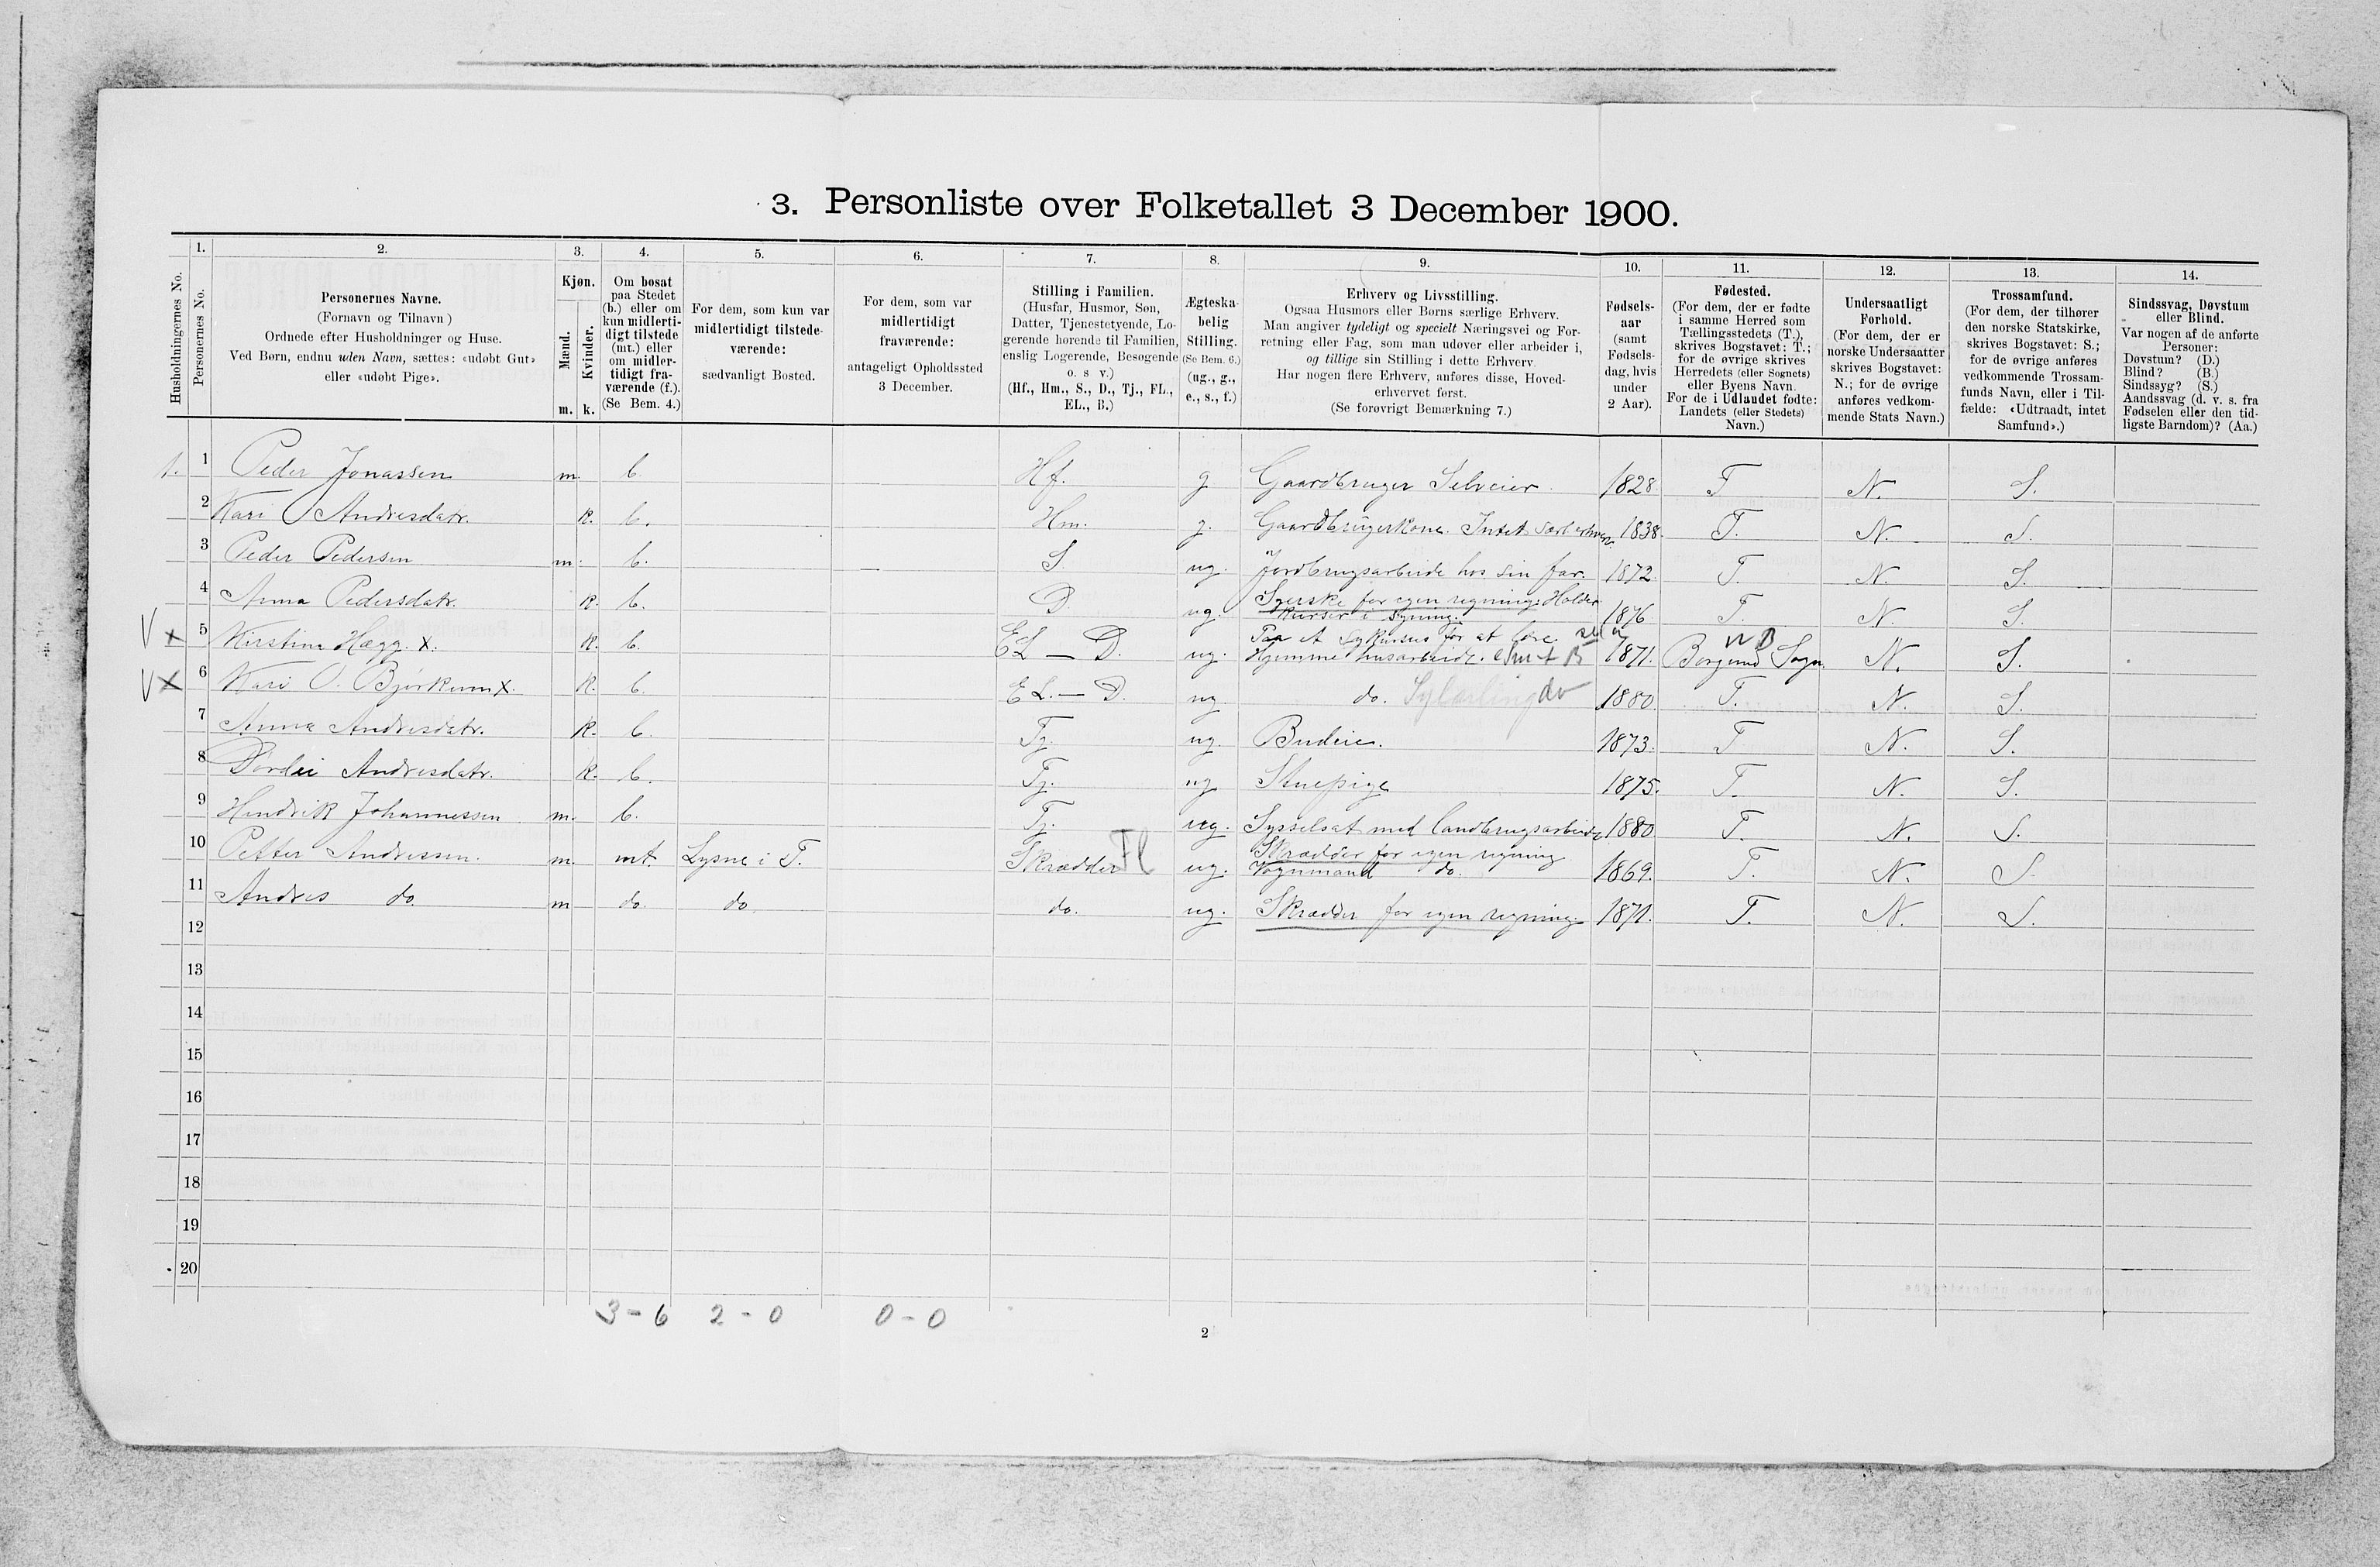 3. Personliste over Folketallet 3 December 1900.
1. 2. 3. 4. 5. 6. 7. 8. 9. 10. 11. 12. 13. 14.
Husholdningernes No.
Personernes No.
Personernes Navne.
(Fornavn og Tilnavn)
Ordnede efter Husholdninger og Huse.
Ved Børn, endnu uden Navn, sættes: «udøbt Gut»
eller «udøbt Pige».
Kjøn.
Mænd.
Kvinder.
m. k.
Om bosat
paa Stedet
(b.) eller om
kun midlerti-
digt tilstede
(mt.) eller
om midler-
tidigt fra-
værende (f.).
(Se Bem. 4.)
For dem, som kun var
midlertidigt tilstede-
værende:
sædvanligt Bosted.
For dem, som var
midlertidigt
fraværende:
antageligt Opholdssted
3 December.
Stilling i Familien.
(Husfar, Husmor, Søn,
Datter, Tjenestetyende, Lo-
gerende hørende til Familien,
enslig Logerende, Besøgende
o. s v.)
(Hf., Hm., S., D., Tj., FL.,
EL., B.)
Ægteska-
belig
Stilling.
(Se Bem. 6.)
(ug., g.,
e., s., f.)
Erhverv og Livsstilling.
Ogsaa Husmors eller Børns særlige Erhverv.
Man angiver tydeligt og specielt Næringsvei og For-
retning eller Fag, som man udøver eller arbeider i,
og tillige sin Stilling i dette Erhverv.
Har nogen flere Erhverv, anføres disse, Hoved-
erhvervet først.
(Se forøvrigt Bemærkning 7.)
Fødsels-
aar
(samt
Fødsels-
dag, hvis
under
2 Aar).
Fødested.
(For dem, der er fødte
i samme Herred som
Tællingsstedets (T.),
skrives Bogstavet: T.;
for de øvrige skrives
Herredets (eller Sognets)
eller Byens Navn.
For de i Udlandet fødte:
Landets (eller Stedets)
Navn.)
Undersaatligt
Forhold.
(For dem, der er
norske Undersaatter
skrives Bogstavet:
N.; for de øvrige
anføres vedkom-
mende Stats Navn.)
Trossamfund.
(For dem, der tilhører
den norske Statskirke,
skrives Bogstavet: S.;
for de øvrige anføres
vedkommende Trossam-
funds Navn, eller i Til-
fælde: «Udtraadt, intet
Samfund».)
Sindssvag, Døvstum
eller Blind.
Var nogen af de anførte
Personer:
Døvstum? (D.)
Blind? (B.)
Sindssyg? (S.)
Aandssvag (d. v. s. fra
Fødselen eller den tid-
ligste Barndom)? (Aa.)
1. 1 Peder Jonassen m. b. Hf. g Gaardbruger Selveier 1828. T N. S.
2 Kari Andresdatr. k. b. Hm. g. Gaardbrugerkone. Intet særl erhverv. 1838. T. N. S.
3 Peder Pedersen m. b. S ug. Jordbrugsarbeide hos sin far. 1872. T. N. S.
4 Anna Pedersdatr. k. b. D ug. Syerske for egen regning. Holder
kurser i syning. 1876. T. N. S.
V x 5 Kirstine Hægg. X. k. b. EL – D. ug. Paa et sykursus for at lære
Hjemme husarbeide. 1871. Borgund Sogn N. S.
V X 6 Kari O. Bjørkum X. k. b. EL. – D. ug do. Sylærling do 1880. T. N. S.
7 Anna Andresdatr. k. b. Tj. ug. Budeie. 1873. T N. S.
8 Dordei Andresdatr. k. b. Tj. ug Stuepige 1875. T. N. S.
9 Hendrik Johannessen m. b. Tj. ug. Sysselsat med landbrugsarbeide 1880 T. N. S.
10 Petter Andressen. m. mt. Lysne i T. Skrædder Fl ug. Skrædder for egen regning
Vognmand do. 1869. T. N. S.
11 Andres do. m do. do. do. ug. Skrædder for egen regning. 1871. T. N. S.
12
13
14
15
16
17
18
19
20
3 - 6 2 - 0 0 - 0
2